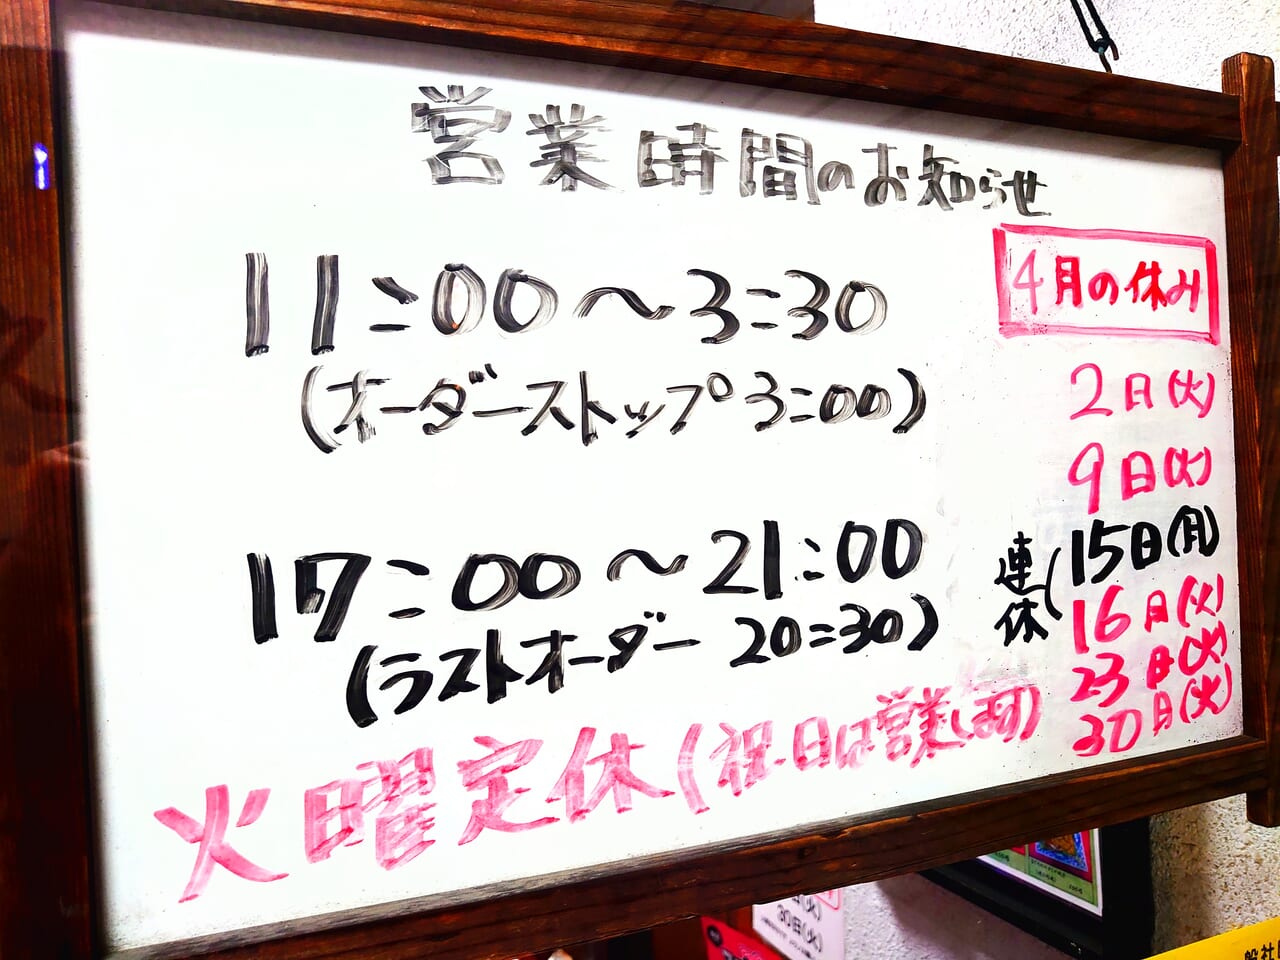 営業時間のお知らせ
11:00〜3:30
(オーダーストップ3:00)
17:00〜21:00
(ラストオーダー 20:30)
火曜定休(祝日は営業します)
4月の休み
2日(火)
9日(火)
連休
15日(月)
16日(火)
23日(火)
30日(火)
30日(火)